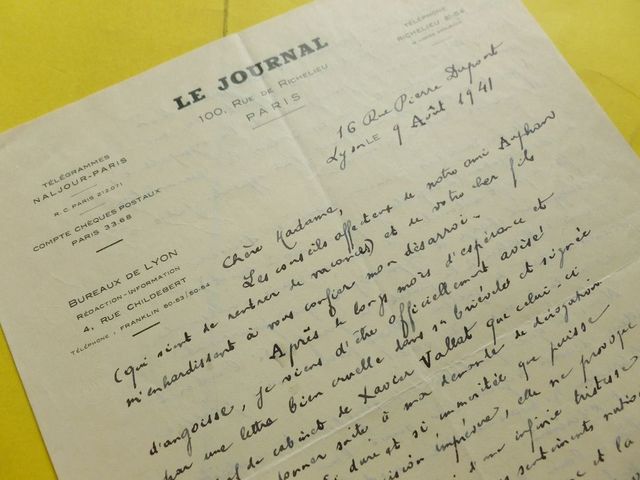 LE JOURNAL
100, RUE DE RICHELIEU
PARIS
TÉLÉPHONE
RICHELIEU 81-54
TÉLÉGRAMMES
NALJOUR-PARIS
R.C PARIS 212.071
COMPTE CHÈQUES POSTAUX
PARIS 33.68
BUREAUX DE LYON
RÉDACTION-INFORMATION
4, RUE CHILDEBERT
TÉLÉPHONE, FRANKLIN 60-53/60-54
16 Rue Pierre Dupont
Lyon LE 9 Août 1941
Chère Madame,
Les conseils affectueux de notre ami
(qui vient de rentrer de vacances) et de votre cher fils
m'enhardissent à vous confier mon désarroi.
Après de longs mois d'espérance et
d'angoisse, je viens d'être officiellement avisé
par une lettre bien cruelle dans sa brièveté et signée
de cabinet de Xavier Vallat que celui-ci
donner suite à ma demande de dérogation
dure et si imméritée que puisse
imprévue, elle ne provoque
d'une infinie tristesse
sentiments
et la